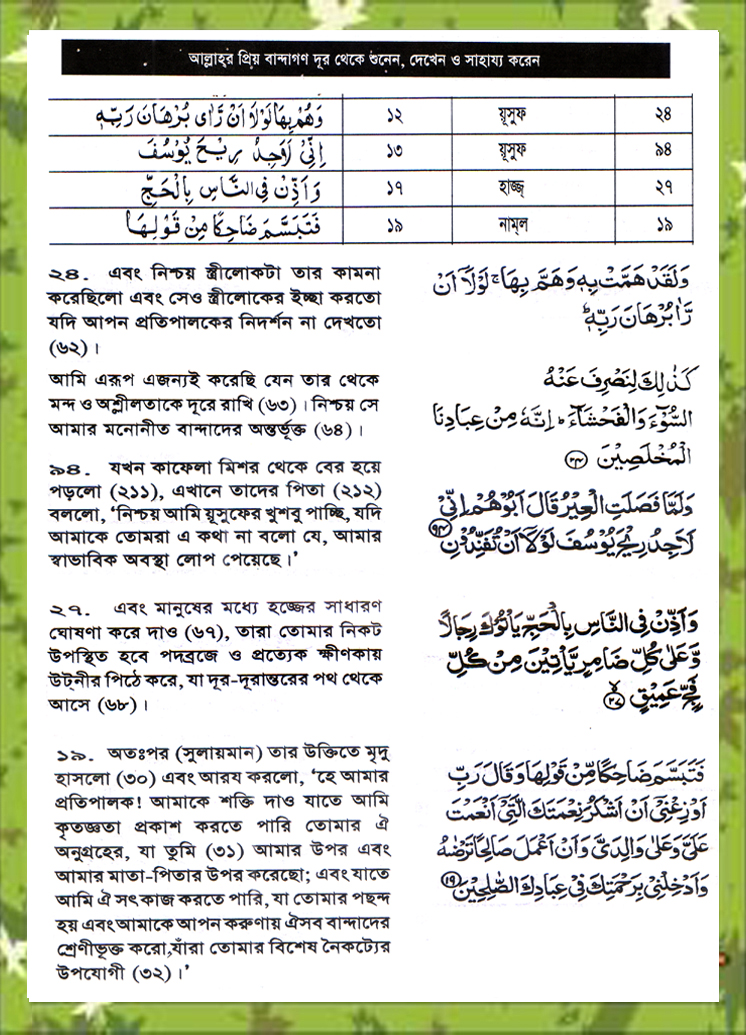 আল্লাহর প্রিয় বান্দাগণ দূর থেকে শুনেন, দেখেন ও সাহায্য করেন
وَهَمَّ بِهَا لَوْلَا اَنْ رَّاٰی بُرْهَانَ رَبِّهٖ ১২ য়ূসুফ ২৪
اِنِّیْ لَاَجِدُ رِیْحَ یُوْسُفَ ১৩ য়ূসুফ ৯৪
وَاَذِّنْ فِی النَّاسِ بِالْحَجِّ ১৭ হাজ্জ্ ২৭
فَتَبَسَّمَ ضَاحِکًا مِّنْ قَوْلِهَا ১৯ নাম্ল ১৯
২৪. এবং নিশ্চয় স্ত্রীলোকটা তার কামনা
করেছিলো এবং সেও স্ত্রীলোকের ইচ্ছা করতো
যদি আপন প্রতিপালকের নিদর্শন না দেখতো
(৬২)।
وَلَقَدْ هَمَّتْ بِهٖ وَهَمَّ بِهَا ۚ لَوْلَاۤ اَنْ
رَّاٰ بُرْهَانَ رَبِّهٖ ؕ
আমি এরূপ এজন্যই করেছি যেন তার থেকে
মন্দ ও অশ্লীলতাকে দূরে রাখি (৬৩)। নিশ্চয় সে
আমার মনোনীত বান্দাদের অন্তর্ভূক্ত (৬৪)।
کَذٰلِکَ لِنَصْرِفَ عَنْهُ
السُّوْٓءَ وَالْفَحْشَآءَ ؕ اِنَّهٗ مِنْ عِبَادِنَا
الْمُخْلَصِیْنَ ۲۴
৯৪. যখন কাফেলা মিশর থেকে বের হয়ে
পড়লো (২১১), এখানে তাদের পিতা (২১২)
বললো, ‘নিশ্চয় আমি য়ূসুফের খুশবু পাচ্ছি, যদি
আমাকে তোমরা এ কথা না বলো যে, আমার
স্বাভাবিক অবস্থা লোপ পেয়েছে।’
وَلَمَّا فَصَلَتِ الْعِیْرُ قَالَ اَبُوْهُمْ اِنِّیْ
لَاَجِدُ رِیْحَ یُوْسُفَ لَوْلَاۤ اَنْ تُفَنِّدُوْنِ ۹۴
২৭. এবং মানুষের মধ্যে হজ্জের সাধারণ
ঘোষণা করে দাও (৬৭), তারা তোমার নিকট
উপস্থিত হবে পদব্রজে ও প্রত্যেক ক্ষীণকায়
উটনীর পিঠে করে, যা দূর-দূরান্তরের পথ থেকে
আসে (৬৮)।
وَاَذِّنْ فِی النَّاسِ بِالْحَجِّ یَاْتُوْکَ رِجَالًا
وَّعَلٰی کُلِّ ضَامِرٍ یَّاْتِیْنَ مِنْ کُلِّ
فَجٍّ عَمِیْقٍ ۙ ۲۷
১৯. অতঃপর (সুলায়মান) তার উক্তিতে মৃদু
হাসলো (৩০) এবং আরয করলো, ‘হে আমার
প্রতিপালক! আমাকে শক্তি দাও যাতে আমি
কৃতজ্ঞতা প্রকাশ করতে পারি তোমার ঐ
অনুগ্রহের, যা তুমি (৩১) আমার উপর এবং
আমার মাতা-পিতার উপর করেছো; এবং যাতে
আমি ঐ সৎ কাজ করতে পারি, যা তোমার পছন্দ
হয় এবং আমাকে আপন করুণায় ঐসব বান্দাদের
শ্রেণীভূক্ত করো,যাঁরা তোমার বিশেষ নৈকট্যের
উপযোগী (৩২)।’
فَتَبَسَّمَ ضَاحِکًا مِّنْ قَوْلِهَا وَقَالَ رَبِّ
اَوْزِعْنِیْۤ اَنْ اَشْکُرَ نِعْمَتَکَ الَّتِیْۤ اَنْعَمْتَ
عَلَیَّ وَعَلٰی وَالِدَیَّ وَاَنْ اَعْمَلَ صَالِحًا تَرْضٰهُ
وَاَدْخِلْنِیْ بِرَحْمَتِکَ فِیْ عِبَادِکَ الصّٰلِحِیْنَ ۱۹